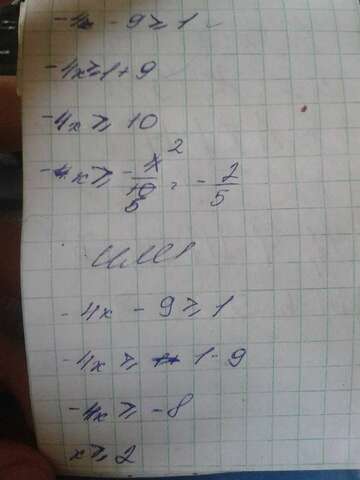 -4x - 9 ≥ 1
-4x ≥ 1 + 9
-4x ≥ 10
x ≥ -4/10 = -2/5
или
-4x - 9 ≥ 1
-4x ≥ 1 - 9
-4x ≥ -8
x ≥ 2